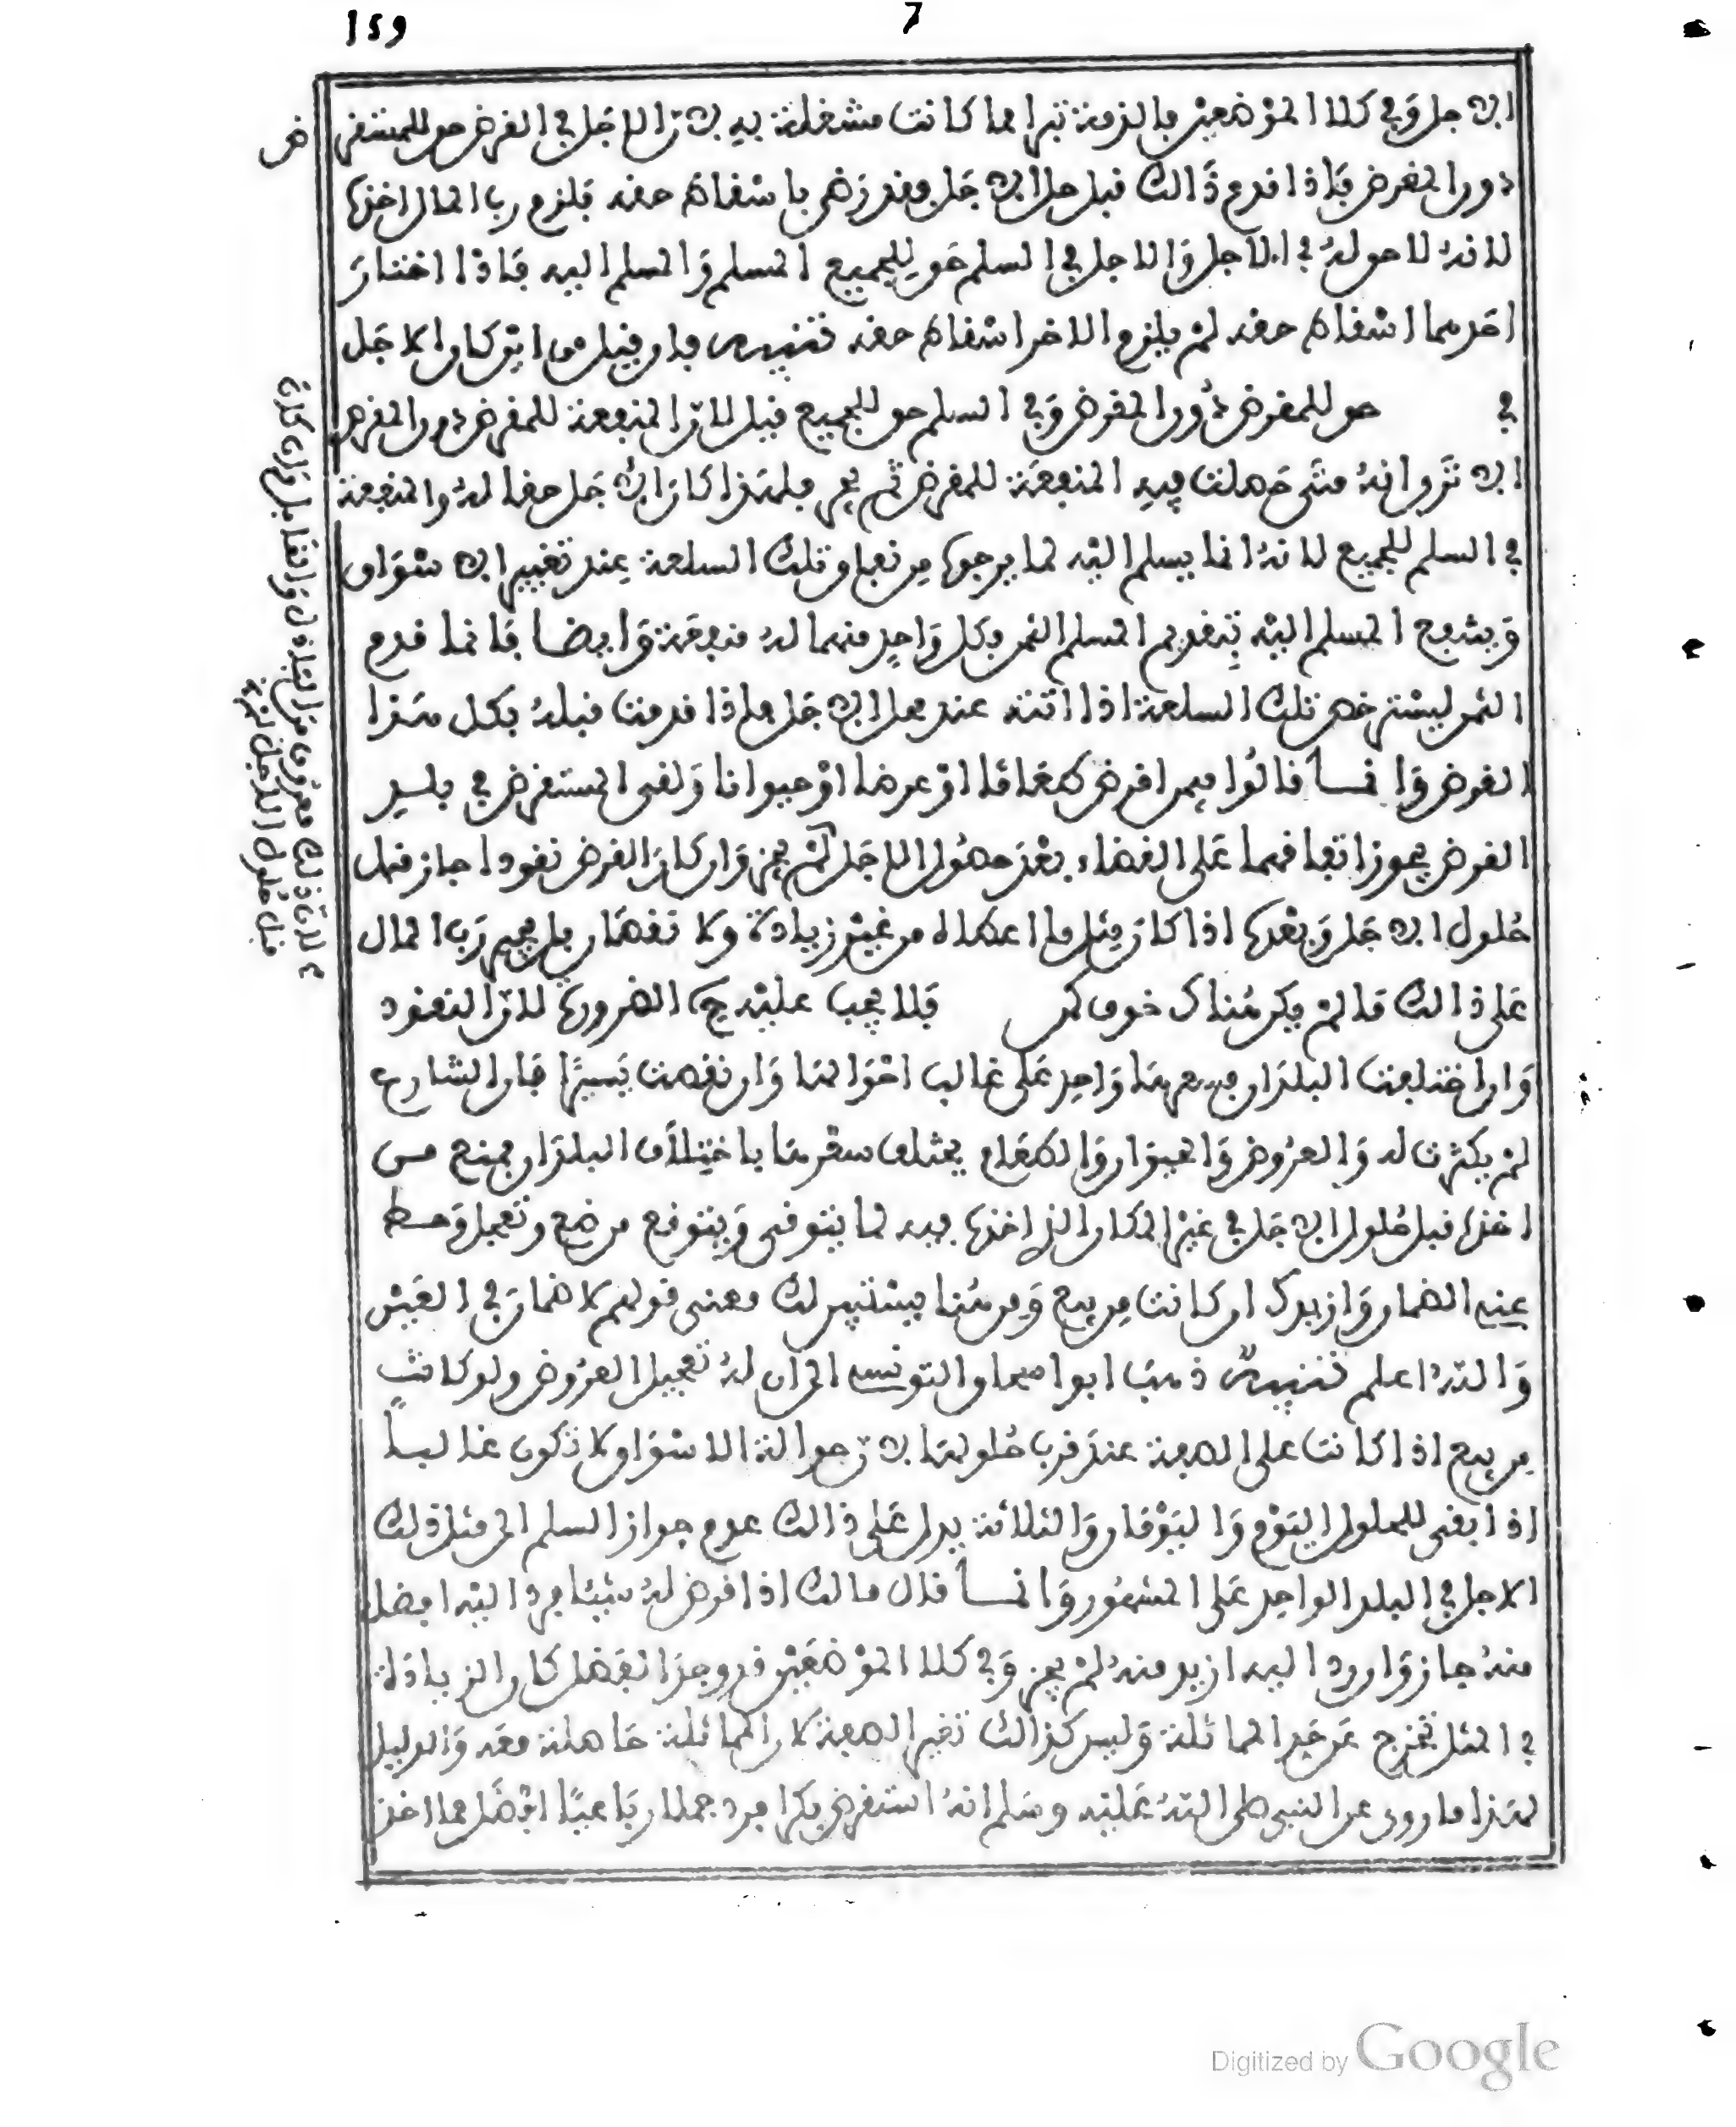 159 7
الاجل وفي كلا الموضعين فالذمة تبرا مما كانت مشغلة به لان الاجل في القرض حق للمستقرض
دون المقرض فاذا قدم ذالك قبل حل الاجل فقد رضى باسقاط حقه فلزم رب المال اخذها
لانه لا حق له في الاجل والاجل في السلم حق للجميع المسلم والمسلم اليه فاذا اختار
احدهما اسقاط حقه لم يلزم الاخر اسقاط حقه تنبيه فان قيل من اين كان الاجل
في حق للمقرض دون المقرض وفي السلم حق للجميع قيل لان المنفعة للمقرض دون المقرض
الا ترى انه متى حصلت فيه المنفعة للمقرض لم يجز فلهذا كان الاجل حقا له والمنفعة
في السلم للجميع لانه انما يسلم اليه لما يرجوا من نفاق تلك السلعة عند تغيير الاسواق
وينتفع المسلم اليه بتقديم المسلم الثمن فكل واحد منهما له منفعة وايضا فانما قدم
الثمن ليسترخص تلك السلعة اذا اتته عند حل الاجل فاذا قدمت قبله بطل هذا
الغرض وانما قالوا فيمن اقرض طعاما او عرضا او حيوانا ولقى المستقرض في بلد غير
القرض يجوز اتفاقهما على القضاء بعد حلول الاجل لم يجز وان كان القرض نقودا جاز قبل
حلول الاجل وبعدها اذا كان مثل ما اعطاه من غير زيادة ولا نقصان بل يجبر رب المال
على ذالك ما لم يكن هناك خوف فلا يجب عليه لان النقود
وان اختلفت البلدان فسعرها واحد على غالب احوالها وان نقصت يسيرا فان الشارع
لم يكترث له والعروض والحيوان والطعام يختلف سعرها باختلاف البلدان فمنع من
اخذها قبل حلول الاجل في غير المكان الذي اخذها فيه لما يتوقى ويتوقع من ضع وتعجل وحط
عنه الضمان وازيدك ان كانت من بيع ومن هنا يستنير لك معنى قولهم لا ضمان في العين
والله اعلم تنبيه ذهب ابوا اسحاق التونسي الى ان له تعجيل العروض ولو كانت
من بيع اذا كانت على الصفة عند قرب حلولها لان حوالة الاسواق لا تكون غالبا
اذا بقى للحلول اليوم واليومان والثلاثة يدل على ذالك عدم جواز السلم الى مثل ذلك
الاجل في البلد الواحد على المشهور وانما قال مالك اذا اقرض له شيئا فرد اليه افضل
منه جاز وان رد اليه ازيد منه لم يجز وفي كلا الموضعين قد وجد الفضل لان الزيادة
في المثل تخرج عن حد المماثلة وليس كذالك تغير الصفة لان المماثلة حاصلة معه والدليل
لهذا ما روى عن النبي صلى الله عليه وسلم انه استقرض بكرا فرد جملا رباعيا افضل مما اخذ